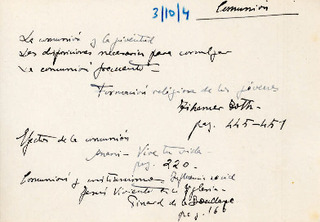 3/10/4
Comunión
La comunión y la juventud
Las disposiciones necesarias para comulgar
La comunión frecuente -
Formación religiosa de los jóvenes
Tihamer Toth -
pag. 445-451
Efectos de la comunión
- Vive tu vida -
pag. 220 -
Comunión y cristianismo - social
Jesús Viviente en la Iglesia -
Girard de la
pag. 166